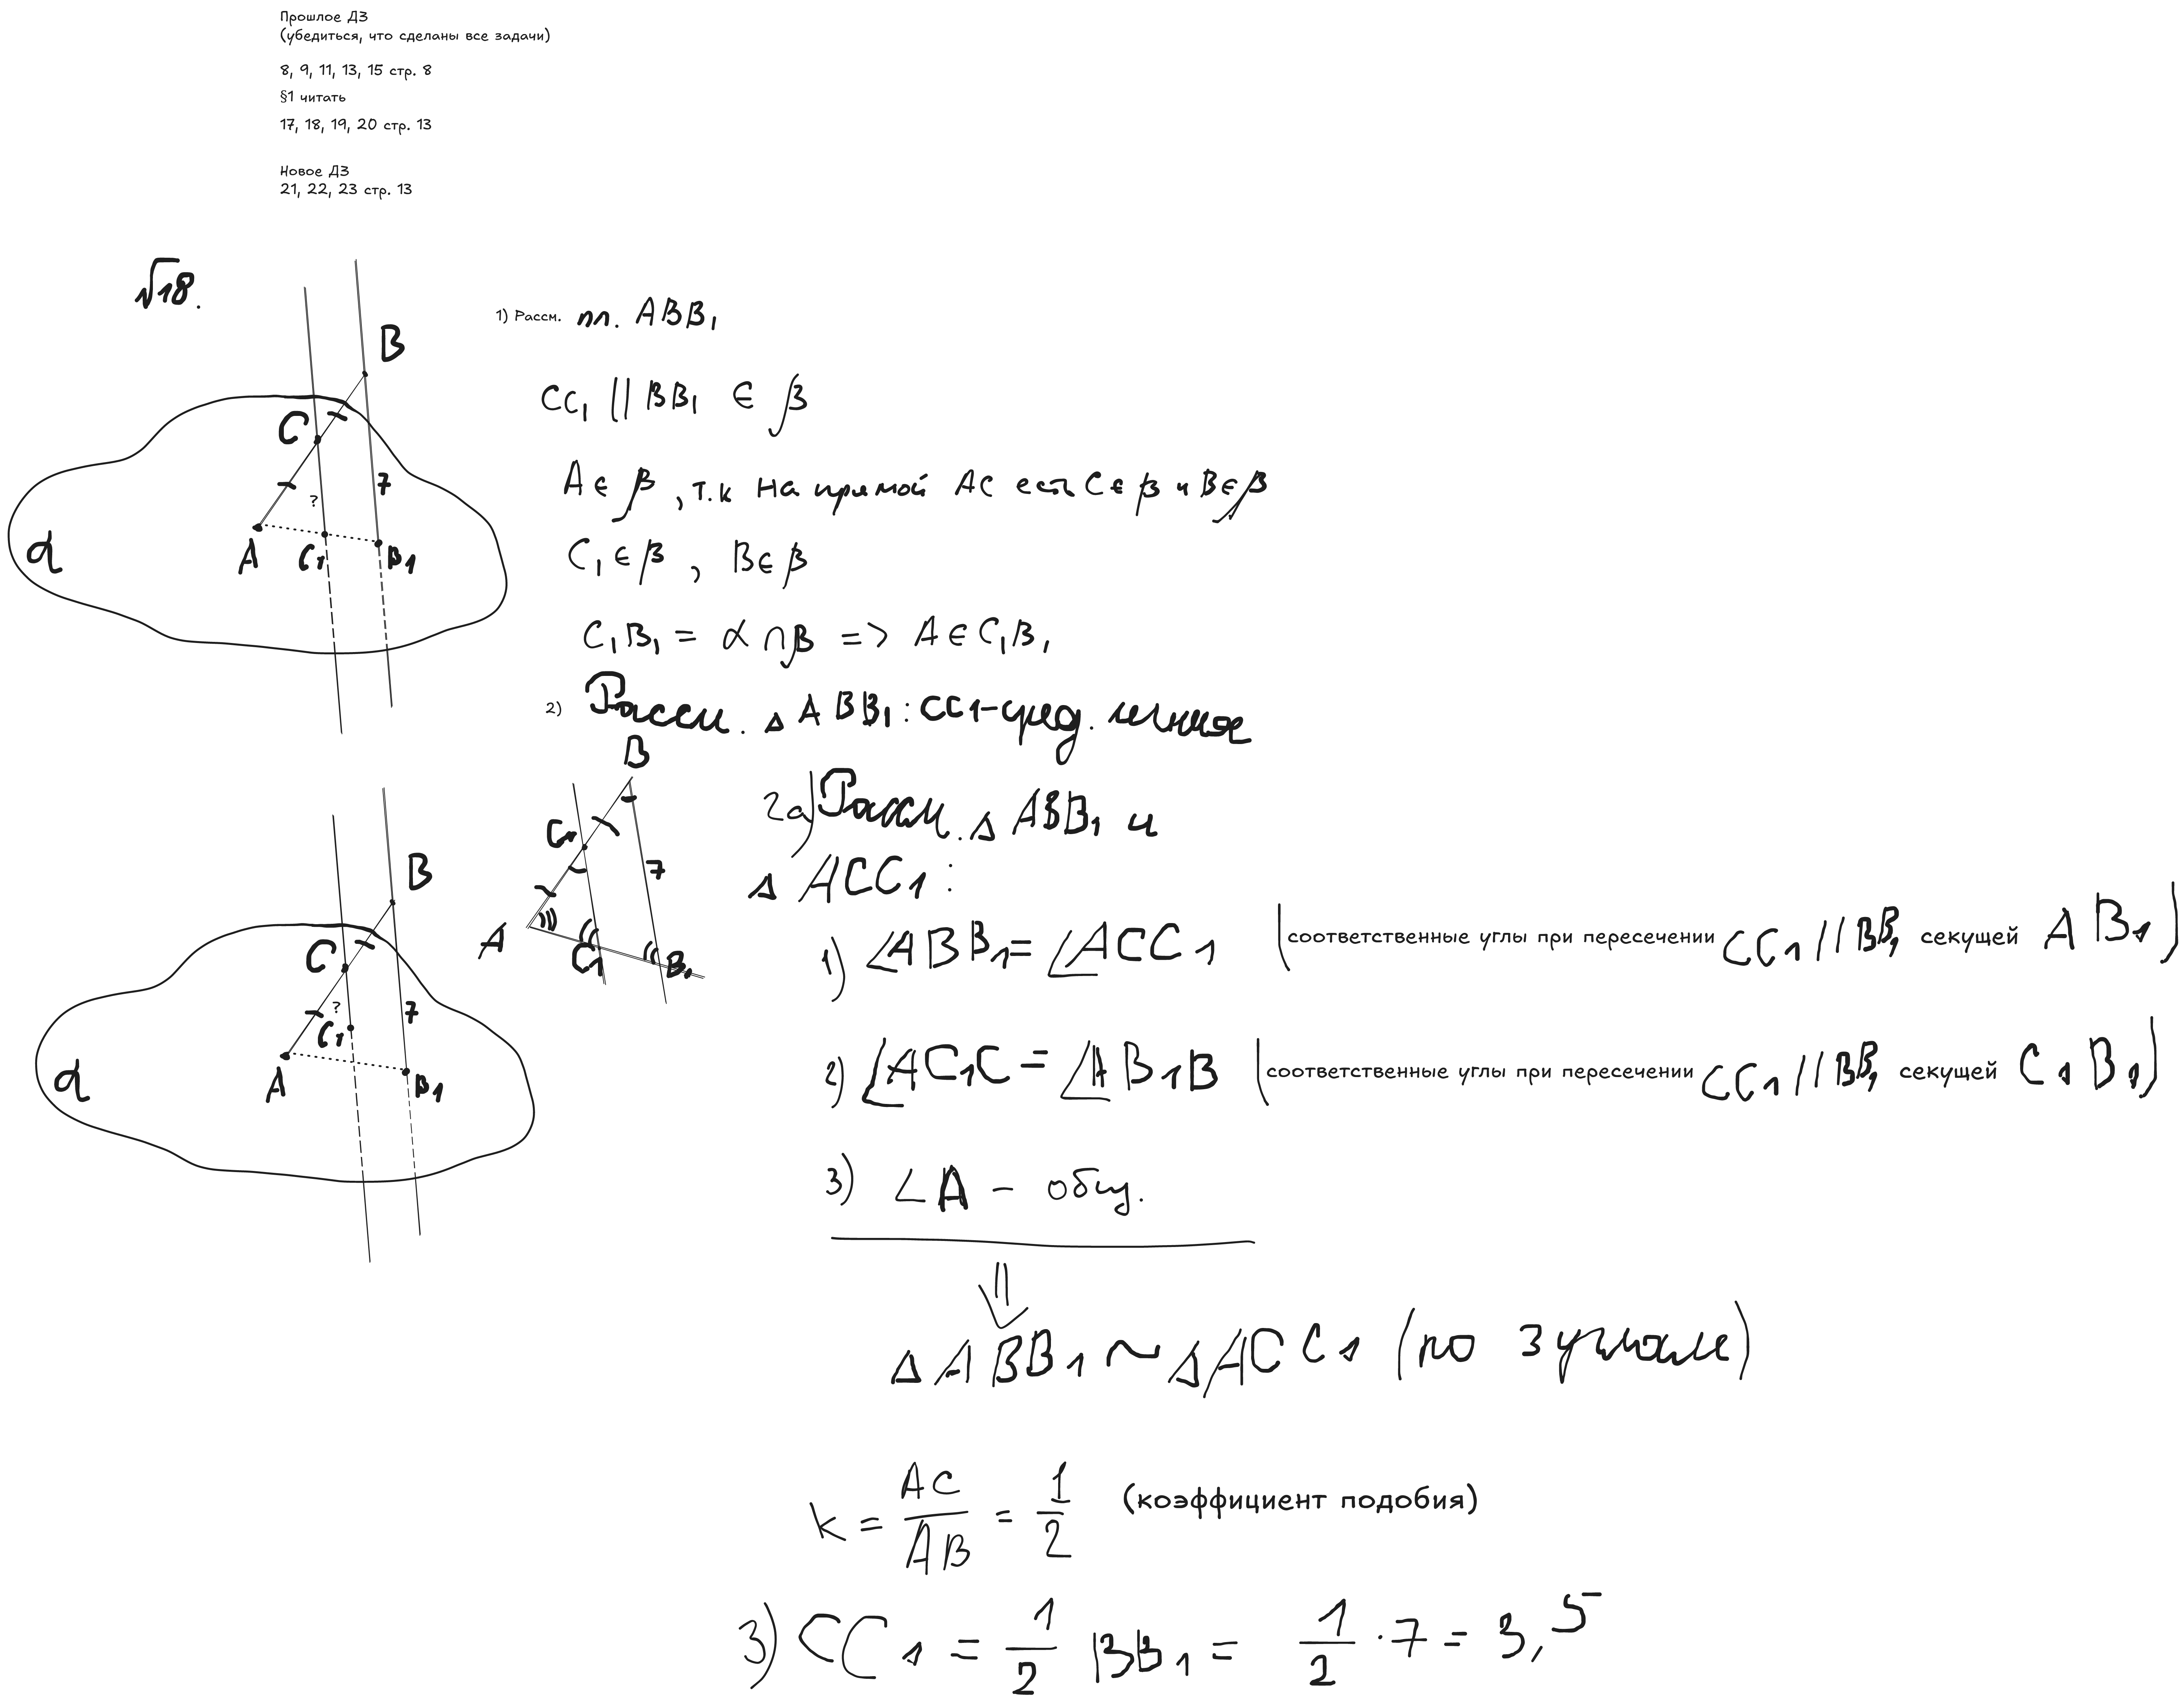 Прошлое ДЗ
(убедиться, что сделаны все задачи)
8, 9, 11, 13, 15 стр. 8
§1 читать
17, 18, 19, 20 стр. 13
Новое ДЗ
21, 22, 23 стр. 13
√18.
B
C
7
?
A
C1
B1
α
1) Рассм. пл. ABB1
CC1 || BB1 ∈ β
A ∈ β, т.к на прямой AC есть C ∈ β и B ∈ β
C1 ∈ β, B ∈ β
C1B1 = α ∩ β => A ∈ C1B1
2) Рассм. △ABB1: CC1-сред. линия
B
C
7
A
C1
B1
2а) Рассм. △ABB1 и
△ACC1:
1) ∠ABB1 = ∠ACC1 (соответственные углы при пересечении CC1 // BB1 секущей AB1)
2) ∠AC1C = ∠AB1B (соответственные углы при пересечении CC1 // BB1 секущей C1B1)
3) ∠A - общ.
△ABB1 ~ △ACC1 (по 3 углам)
k = AC/AB = 1/2 (коэффициент подобия)
3) CC1 = 1/2 BB1 = 1/2 · 7 = 3,5
B
C
7
?
C1
A
B1
α